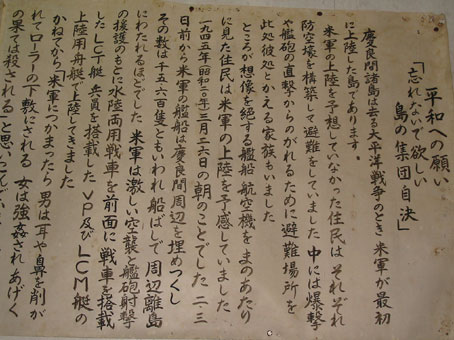 平和への願い
「忘れないで欲しい
島の集団自決」
慶良間諸島は去る太平洋戦争のとき 米軍が最初
に上陸した島々であります
米軍の上陸を予想していなかった住民は それぞれ
防空壕を構築して避難をしていました 中には爆撃
や艦砲の直撃からのがれるために避難場所を
此処彼処とかえる家族もいました
ところが想像を絶する艦船 航空機をまのあたり
に見た住民は米軍の上陸を予感していました
一九四五年(昭和二〇年)三月二六日の朝のことでした 二、三
日前から米軍の艦船は慶良間周辺を埋めつくし
その数は千五、六百隻ともいわれ 船ばしで 周辺離島
にわたれるほどでした 米軍は激しい空襲と艦砲射撃
の援護のもとに水陸両用戦車を前面に 戦車を搭載
したLCT艇 兵員を搭載した VP及びLCM艇の
上陸用舟艇で上陸してきました
かねてから「米軍につかまったら 男は耳や鼻を削が
れてローラーの下敷にされる 女は強姦され あげく
の果ては殺される」と